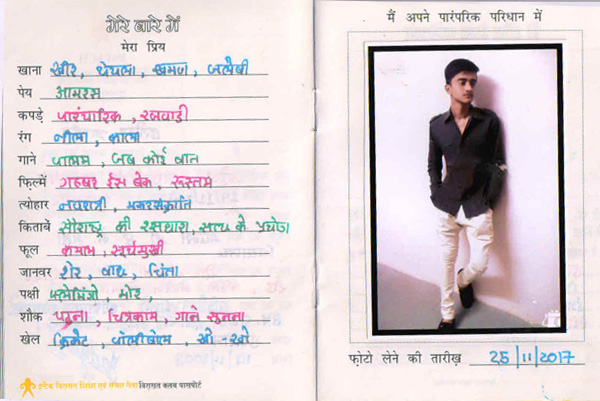 मेरे बारे में
मेरा प्रिय
खाना खीर, थेपला, खमण, जलेबी
पेय आमरस
कपड़े पारंपारिक, रजवाडी
रंग नीला, काला
गाने वालम, जब कोई बात
फ़िल्में गब्बर ईस बेक, रूस्तम
त्योहार नवरात्री, मकरसंक्रांति
किताबें सौराष्ट्र की रसधारा, सत्य के प्रयोग
फूल कमल, सूर्यमुखी
जानवर शेर, वाघ, चिता
पक्षी फ्लेमिंगो, मोर,
शौक पढ़ना, चित्रकाम, गाने सुनना
खेल क्रिकेट, वोलीबोल, खो-खो
इन्टैक विरासत शिक्षा एवं संचार सेवा विरासत क्लब पासपोर्ट
मैं अपने पारंपरिक परिधान में
फ़ोटो लेने की तारीख़ 25/11/2017